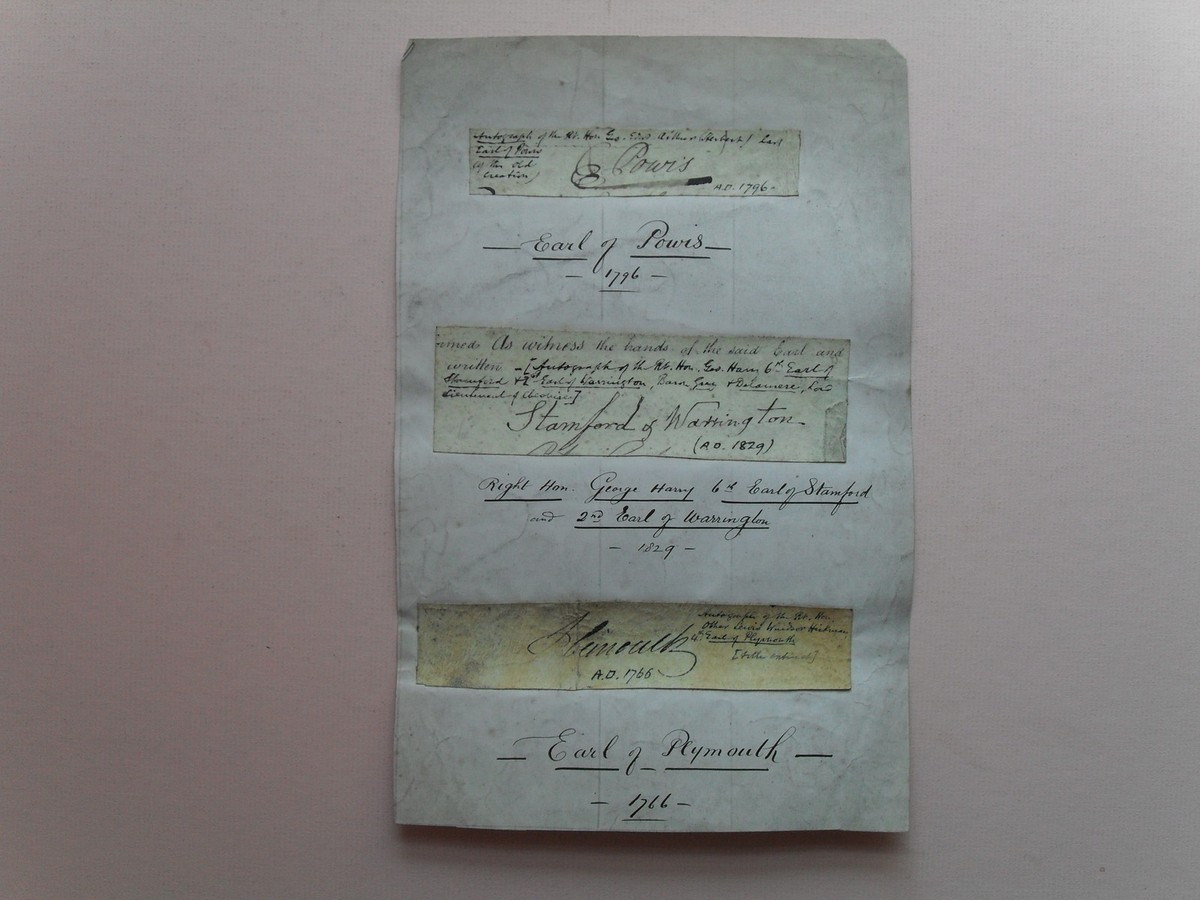 Autograph of the Rt. Hon. Geo. Edwd Arthur (Herbert) last
Earl of Powis
(of the old
creation)
Powis
A.D. 1796-
— Earl of Powis —
— 1796 —
As witness the hands of the said Earl and
written - [Autograph of the Rt. Hon. Geo. Harry 6th Earl of
Stamford & 2nd Earl of Warrington, Baron Grey & Delamere, Lord
Lieutenant of Cheshire]
Stamford & Warrington
(A.D. 1829)
Right Hon. George Harry 6th Earl of Stamford
and 2nd Earl of Warrington
— 1829 —
Autograph of the Rt. Hon
Other Lewis Windsor Hickman
4th Earl of Plymouth
Plimouth
A.D. 1766
— Earl of Plymouth —
— 1766 —